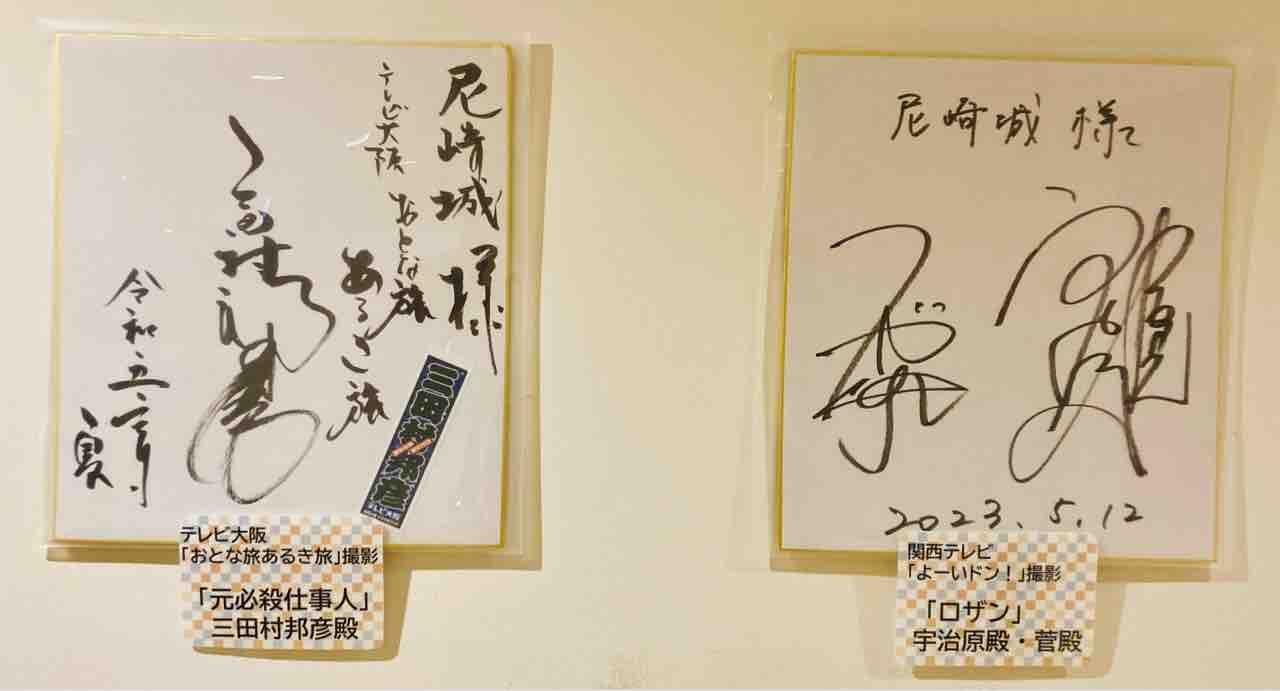 尼崎城様
テレビ大阪
おとな旅
あるき旅
三田村邦彦
令和五年
夏
三田村邦彦
テレビ大阪
テレビ大阪
「おとな旅あるき旅」撮影
「元必殺仕事人」
三田村邦彦殿
尼崎城 様
2023.5.12
関西テレビ
「よーいドン!」撮影
「ロザン」
宇治原殿・菅殿